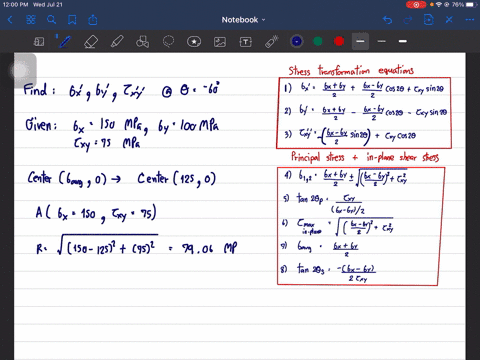 12:00 PM Wed Jul 21
76%
Notebook
Find: 6x', 6y', τx'y' @ θ = -60°
Given: 6x = 150 MPa, 6y = 100 MPa
τxy = 75 MPa
Center (6avg, 0) → Center (125, 0)
A ( 6x = 150, τxy = 75)
R = √((150-125)² + (75)²) = 79.06 MP
Stress transformation equations
1) 6x' = (6x+6y)/2 + (6x-6y)/2 cos2θ + τxy sin2θ
2) 6y' = (6x+6y)/2 - (6x-6y)/2 cos2θ - τxy sin2θ
3) τx'y' = -((6x-6y)/2 sin2θ) + τxy cos2θ
Principal stress + in-plane shear stress
4) 61,2 = (6x+6y)/2 ± √(((6x-6y)/2)² + τxy²)
5) tan 2θp = τxy/((6x-6y)/2)
6) τmax in-plane = √(((6x-6y)/2)² + τxy²)
7) 6avg = (6x+6y)/2
8) tan 2θs = -(6x-6y)/(2τxy)